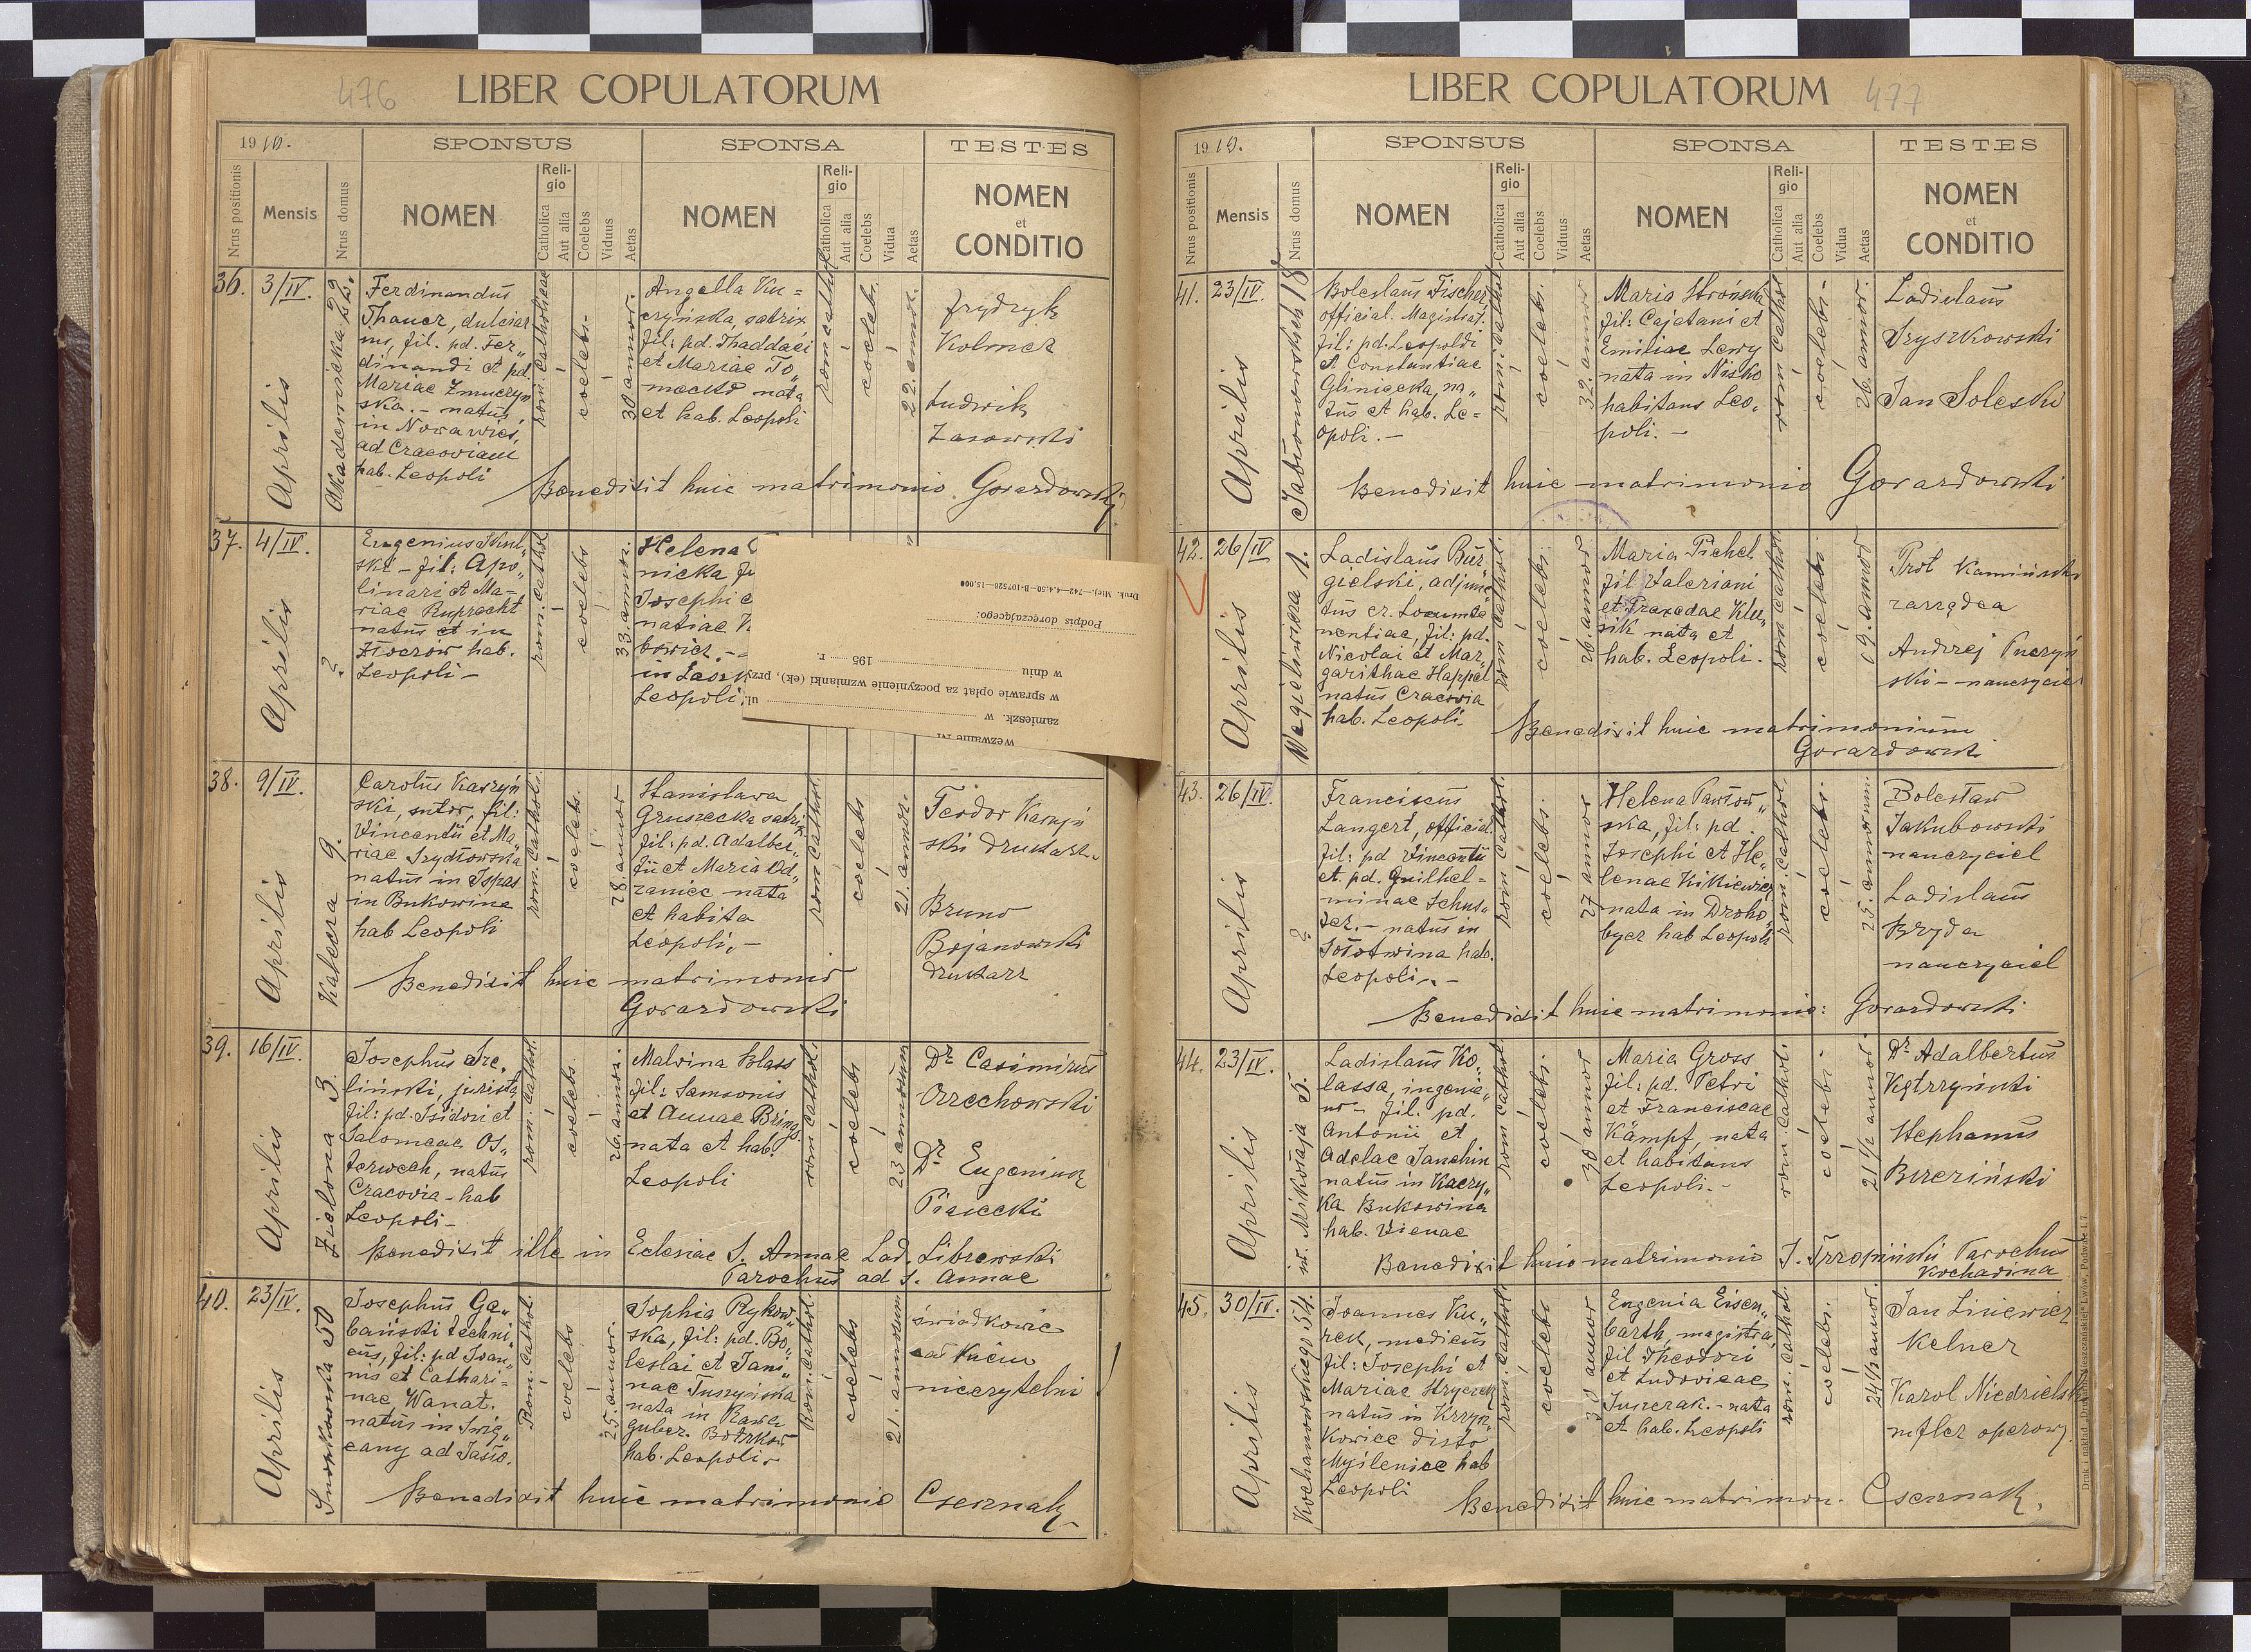 476
LIBER COPULATORUM
1910.
SPONSUS
SPONSA
TESTES
Nrus positionis
Mensis
Nrus domus
NOMEN
Religio
Catholica
Aut alia
Coelebs
Viduus
Aetas
NOMEN
Religio
Catholica
Aut alia
Coelebs
Vidua
Aetas
NOMEN
et
CONDITIO
36.
3/IV.
Aprilis
Akademicka 22.
Ferdinandus
Thauer, dulciar
ius, fil. pd. Fer„
dinandi et pd.
Mariae
ska. - natus
in Nowa wieś,
ad Cracoviam
hab. Leopoli
rom. catholicae
coelebs.
30 annor.
Angella Ku=
czyńska, satrix
fil: pd. Thaddaei
et Mariae To„
nata
et hab. Leopoli
rom cathol.
coelebs.
22. annor.
Frydryk
Kolmer
Ludwik
Benedixit huic matrimonio. Gorazdowski
37.
4/IV.
Aprilis
?
Eugenius
ski - fil: Apo„
linari et Ma-
riae Ruprecht
natus et in
hab.
Leopoli -
rom. cathol
coelebs
33. annor.
Helena
nicka
Josephi
natiae
bowicz. -
in
Leopoli.
Druk. Miej.—742—4.4.50-B-107528—15.000
Podpis doręczającego:
w dniu 195 r.
w sprawie opłat za poczynienie wzmianki (ek), przy
zamieszk. w ul.
Wezwanie Nr
38.
9/IV.
Aprilis
Kalecza 9.
Carolus Karzyń
ski, sutor, fil:
Vincentii et Ma„
riae Szydłowska
natus in Ispas
in Bukowina
hab Leopoli
rom. Catholi.
coelebs.
28. annor
Stanislava
Gruszecka satrix
fil: pd. Adalber„
ti et Maria Od„
raniec nata
et habita
Leopoli. -
rom Cathol.
coelebs
21. annor.
Teodor Karzyń
ski drukarz.
Bruno
Bojanowski
drukarz
Benedixit huic matrimonio
Gorazdowski
39.
16/IV.
Aprilis
Zielona 3.
Josephus Dre„
liński, jurista
fil: pd. Isidori et
Salomeae Os„
terwech, natus
Cracovia - hab
Leopoli -
rom. Cathol.
coelebs
26. annor.
Malvina Blass
fil: Samsonis
et Annae Brings.
nata et hab.
Leopoli
rom Cathol.
coelebs
23 annorum
Dr Casimirus
Orzechowski
Dr Eugeniusz
Piasecki
Benedixit ille in Eclesiae S. Annae Lad. Librewski
Parochus ad S. Annae
40.
23/IV.
Aprilis
Snopkowska 50
Josephus Ga„
bański techni
cus, fil: pd Joan„
nis et Cathari=
nae Wanat.
natus in Swię„
cany ad Jasło.
Rom. Cathol.
coelebs
25. annor.
Sophia Rykow„
ska, fil: pd. Bo„
leslai et Jani„
nae Tuszyńska
nata in Rawa
guber. Piotrków
hab. Leopoli.
Rom. Cathol
coelebs
21. annorum
świadkowie
nieczytelni !
Benedixit huic matrimonio Csesznak
477
LIBER COPULATORUM
1910.
SPONSUS
SPONSA
TESTES
Nrus positionis
Mensis
Nrus domus
NOMEN
Religio
Catholica
Aut alia
Coelebs
Viduus
Aetas
NOMEN
Religio
Catholica
Aut alia
Coelebs
Vidua
Aetas
NOMEN
et
CONDITIO
41.
23/IV.
Aprilis
Jabłonowskich 18
Boleslaus Fischer
official. Magistrat.
fil: pd. Leopoldi
et Constantiae
Gliniecka, na„
tus et hab. Le=
opoli. -
rom: cathol
coelebs.
32. annor
Maria Strońska
fil: Cajetani et
Emiliae Lewy
nata in Nisko
habitans Leo„
poli. -
rom cathol
coelebs.
26. annor.
Ladislaus
Tryszkowski
Jan Soleski
Benedixit huic matrimonio Gorazdowski
42.
26/IV
Aprilis
Wagilewicza 1.
Ladislaus Bur„
gielski, adjunc„
tus cr. Locumte
nentiae, fil: pd.
Nicolai et Mar„
garithae Happel
natus Cracovia
hab. Leopoli.
rom cathol.
coelebs.
26. annor
Maria Pichel
fil Valeriani
et Praxedae Klu„
sik nata et
hab. Leopoli.
rom cathol.
coelebs.
19. annor
Prot Kamiński
zarządca
Andrzej
ski - nauczyciel
Benedixit huic matrimonium
Gorazdowski
43.
26/IV.
Aprilis
?
Franciscus
Langert, official.
fil: pd Vincentii
et. pd. Guilhel=
minae Schus„
ter. - natus in
Sołotwina hab.
Leopoli. -
rom. Cathol.
coelebs.
27 annor
Helena Pawłow„
ska, fil: pd.
Josephi et He„
lenae Kikiewicz
nata in Droho„
bycz hab Leopoli
rom. Cathol.
coelebs.
25. annorum
Bolesław
Jakubowski
nauczyciel
Ladislaus
Bryda
nauczyciel
Benedixit huic matrimonio: Gorazdowski
44.
23/IV.
Aprilis
św. Mikołaja 5.
Ladislaus Ko„
lassa, ingenie„
ur - fil. pd.
Antonii et
Adelae Janchin
natus in Kaczy„
ka Bukowina
hab. Vienae
rom cathol
coelebs.
30 annor
Maria Gross
fil: pd. Petri
et Franciscae
Kämpf, nata
et habitans
Leopoli. -
rom. Cathol.
coelebs.
21 1/2 annor.
Dr Adalbertus
Kętrzyński
Stephanus
Brzeziński
Benedixit huic matrimonio J. Trzopiński Parochus
Kochawina
45.
30/IV.
Aprilis
Kochanowskiego 54.
Joannes Ku„
rek, medicus
fil: Josephi et
Mariae Stryczek
natus in Krzysz„
kowice disto
Myślenice hab
Leopoli
rom. Cathol.
coelebs
30 annor
Eugenia Eisen„
barth, magistra,
fil Theodori
et Ludovicae
Juszczak. - nata
et hab. Leopoli
rom. Cathol.
coelebs.
24 1/2 annor.
Jan Lisiewicz
kelner
Karol Niedzielski
operowy.
Benedixit huic matrimon. Csesznak.